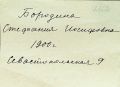 Бородина
Стефания Иосифовна
1900 г.
Севастопольская 9